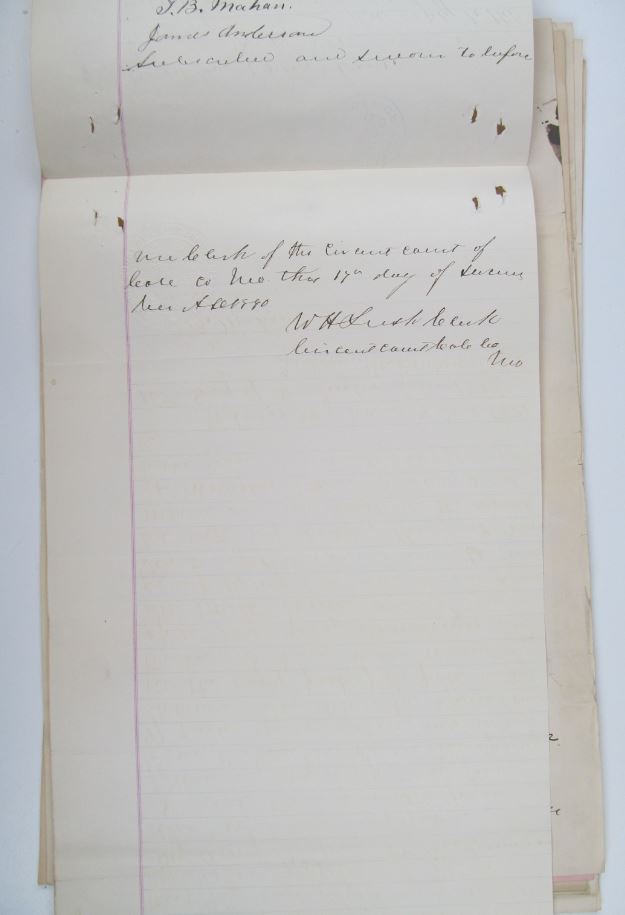 T. B. Mahan.
James Anderson
Subscribed and sworn to before
me Clerk of the Circuit Court of
Cole Co Mo this 17th day of Decem
ber A D 1890
W H Lusk Clerk
Circuit Court Cole Co
Mo